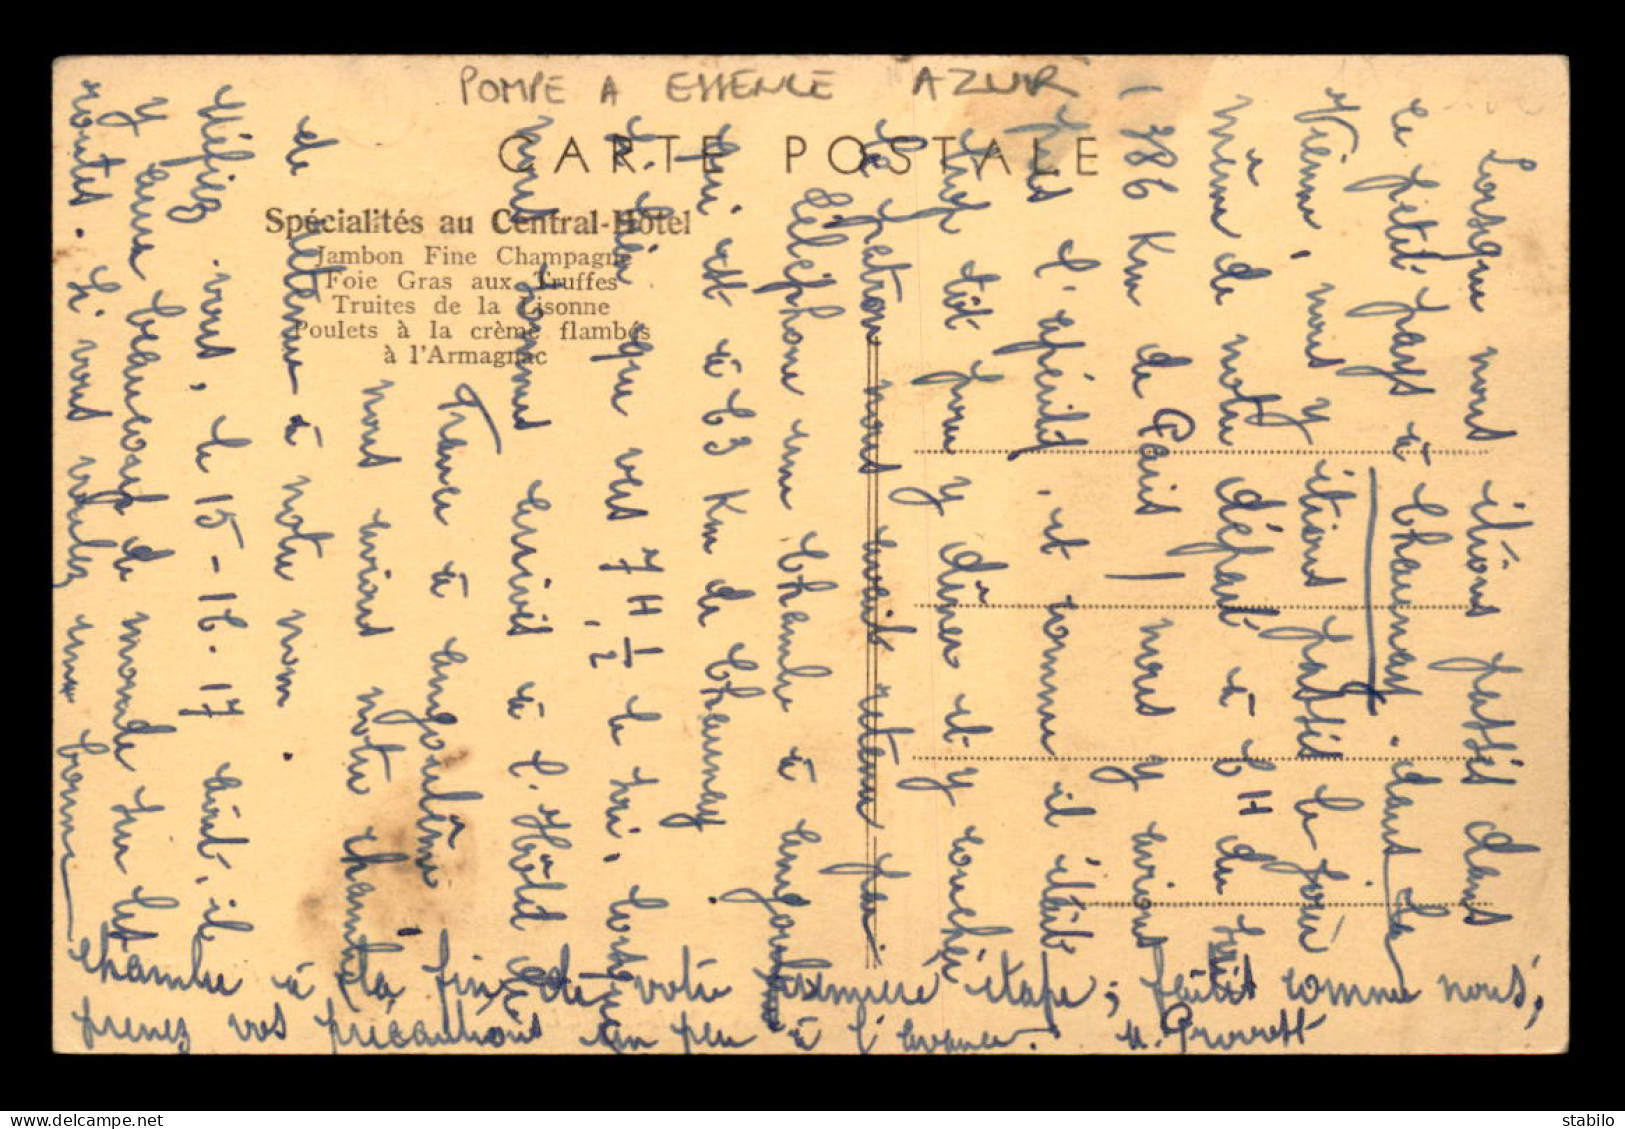 POMPE A ESSENCE AZUR
CARTE POSTALE
Spécialités au Central-Hôtel
Jambon Fine Champagne
Foie Gras aux Truffes
Truites de la Lisonne
Poulets à la crème flambés
à l'Armagnac
Lorsque nous étions passés dans
ce petit pays à Chaunay. dans la
Vienne, nous y étions passés le jour
même de notre départ à 6H du soir
386 Km de Paris! nous y avions
pris l'apéritif. et comme il était
trop tôt pour y dîner et y coucher
le patron nous avait retenu par
téléphone une chambre à Angoulême
qui est à 63 Km de Chaunay.
si bien que vers 7H 1/2 le soir, lorsque
nous sommes arrivés à l'Hôtel de
France à Angoulême
nous avions notre chambre
de retenue à notre nom.
Méfiez vous, le 15-16-17 août, il
y aura beaucoup de monde sur les
routes. si vous voulez une bonne
chambre à la fin de votre première étape; faites comme nous,
prenez vos précautions un peu à l'avance. M.
stabilo